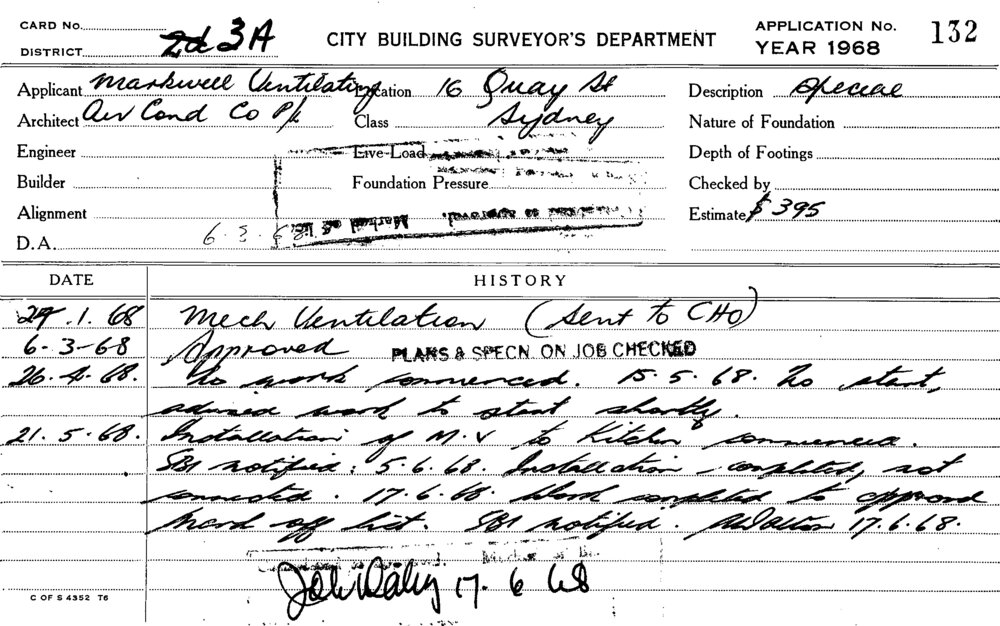 CARD No.
DISTRICT 2d 3A
CITY BUILDING SURVEYOR'S DEPARTMENT
APPLICATION No. 132
YEAR 1968
Applicant Markwell Ventilating Location 16 Quay St Description Special
Architect Air Cond Co P/L Class Sydney Nature of Foundation
Engineer Live Load Depth of Footings
Builder Foundation Pressure Checked by
Alignment Estimate $ 395
D.A. 6.3.68
DATE HISTORY
29.1.68 Mech Ventilation (Sent to CHO)
6-3-68 Approved PLANS & SPECN. ON JOB CHECKED
26.4.68. No work commenced. 15.5.68. No start,
advised work to start shortly.
21.5.68. Installation of M.V to Kitchen commenced.
SBI notified: 5.6.68. Installation completed, not
connected. 17.6.68. Work completed to approved
Mark off list. SBI notified. 17.6.68.
John Daley 17 6 68
C OF S 4352 T6